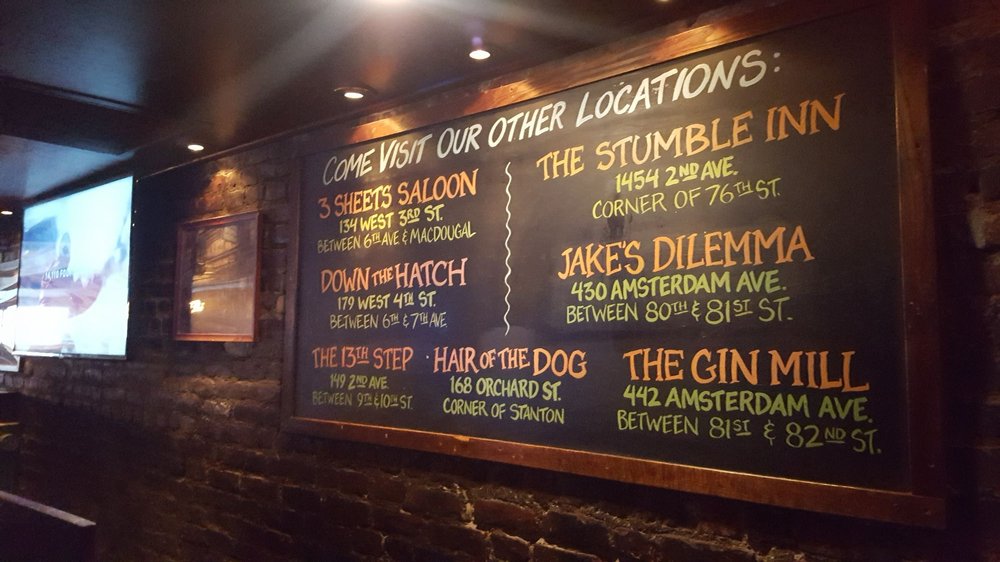 COME VISIT OUR OTHER LOCATIONS:
3 SHEETS SALOON
134 WEST 3RD ST.
BETWEEN 6TH AVE & MACDOUGAL
DOWN THE HATCH
179 WEST 4TH ST.
BETWEEN 6TH & 7TH AVE.
THE 13TH STEP
149 2ND AVE.
BETWEEN 9TH & 10TH ST.
HAIR OF THE DOG
168 ORCHARD ST.
CORNER OF STANTON
THE STUMBLE INN
1454 2ND AVE.
CORNER OF 76TH ST.
JAKE'S DILEMMA
430 AMSTERDAM AVE.
BETWEEN 80TH & 81ST ST.
THE GIN MILL
442 AMSTERDAM AVE.
BETWEEN 81ST & 82ND ST.